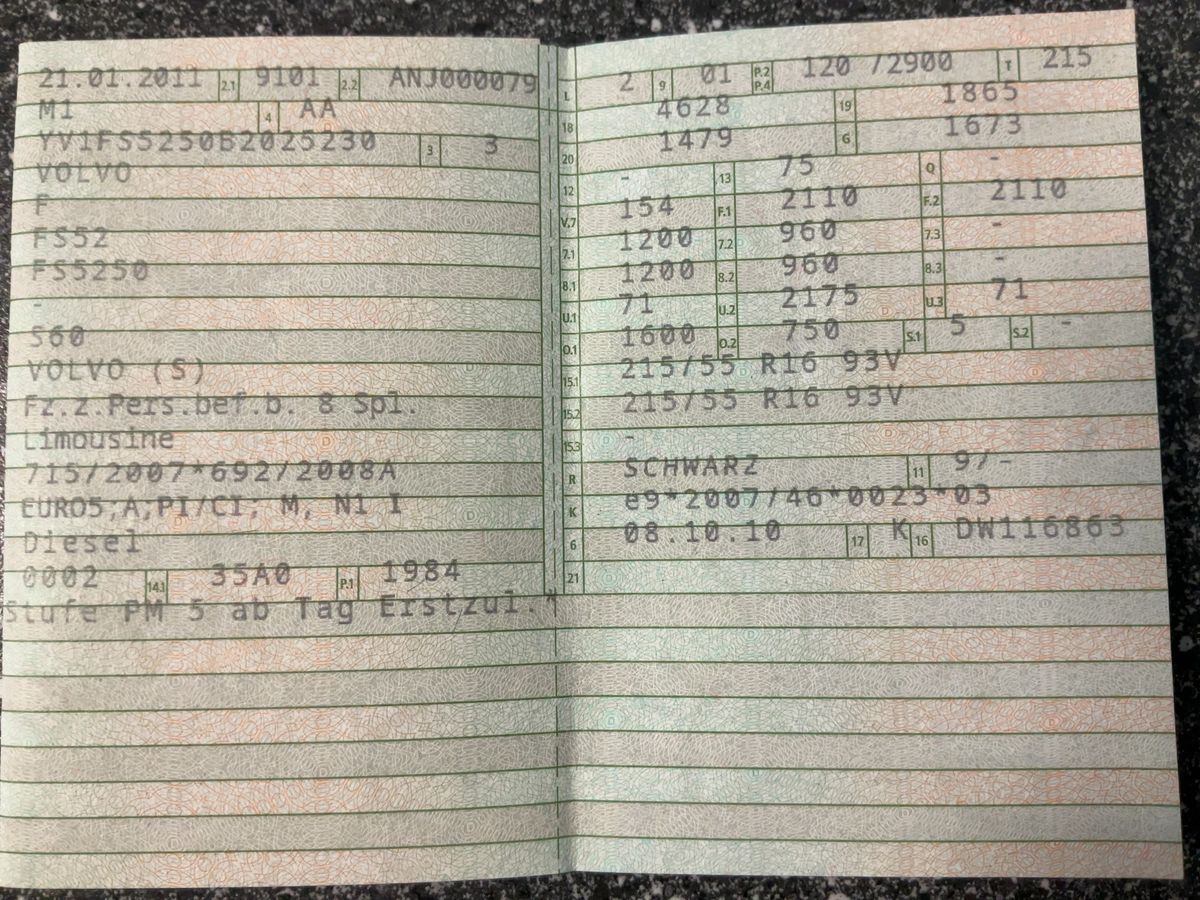 21.01.2011 2.1 9101 2.2 ANJ000079
M1 4 AA
YV1FS5250B2025230 3 3
VOLVO
F
FS52
FS5250
-
S60
VOLVO (S)
Fz.z.Pers.bef.b. 8 Spl.
Limousine
715/2007*692/2008A
EURO5;A;PI/CI; M, N1 I
Diesel
0002 14.1 35A0 P.1 1984
Stufe PM 5 ab Tag Erstzul.*
L 2 9 01 P.2 P.4 120 /2900 T 215
18 4628 19 1865
20 1479 G 1673
12 - 13 75 Q -
V.7 154 F.1 2110 F.2 2110
7.1 1200 7.2 960 7.3 -
8.1 1200 8.2 960 8.3 -
U.1 71 U.2 2175 U.3 71
O.1 1600 O.2 750 S.1 5 S.2 -
15.1 215/55 R16 93V
15.2 215/55 R16 93V
15.3 -
R SCHWARZ 11 9/-
K e9*2007/46*0023*03
6 08.10.10 17 K 16 DW116863
21